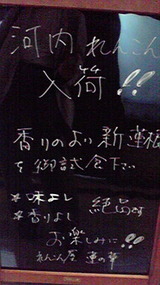 河内れんこん
入荷!!
香りのよい新蓮根
を御試食下さい
*味よし
*香りよし
絶品です
お楽しみに!!
れんこん屋 蓮の華